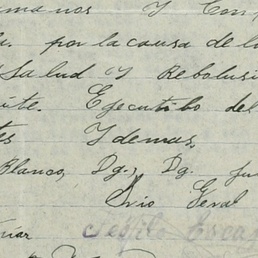 manos Y Con
a. por la causa de l
Salud Y Rebolusi
ite. Ejecutibo del
tes Ydemas,
Blanco, Dg., Dg.
Srio Geral
Teofilo Esca